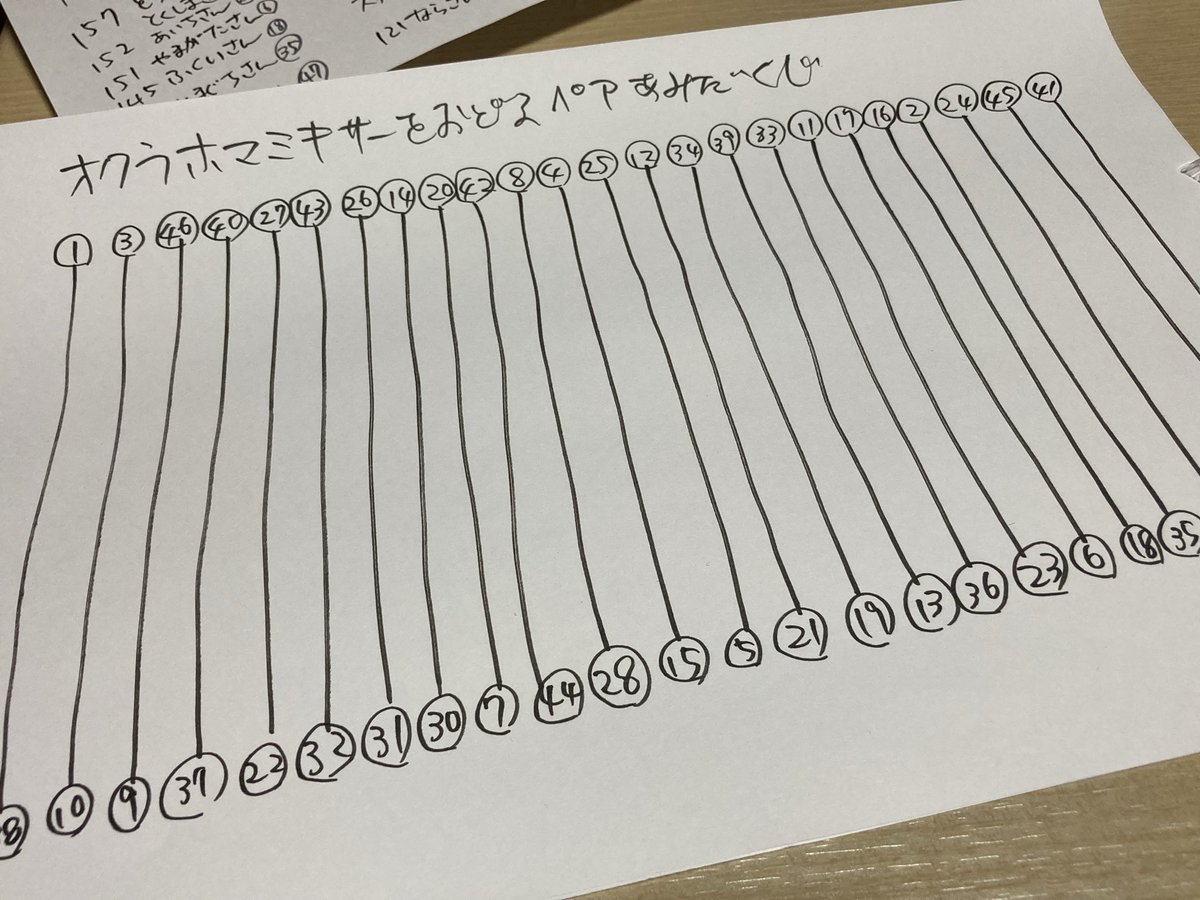 157
とくしま
152 あいちさん
151 やまがたさん⑥
145 ふくいさん⑱
ぐちさん㉟
㊼
121 ならさ
オクラホマミキサーをおどるペアあみだくじ
① ③ ㊻ ㊵ ㉗ ㊸ ㉖ ⑭ ⑳ ㊷ ⑧ ④ ㉕ ⑫ ㉞ ㊴ ㉝ ⑪ ⑰ ⑯ ② ㉔ ㊺ ㊶
8 ⑩ ⑨ ㊲ ㉒ ㉜ ㉛ ㉚ ⑦ ㊹ ㉘ ⑮ ⑤ ㉑ ⑲ ⑬ ㊱ ㉓ ⑥ ⑱ ㉟